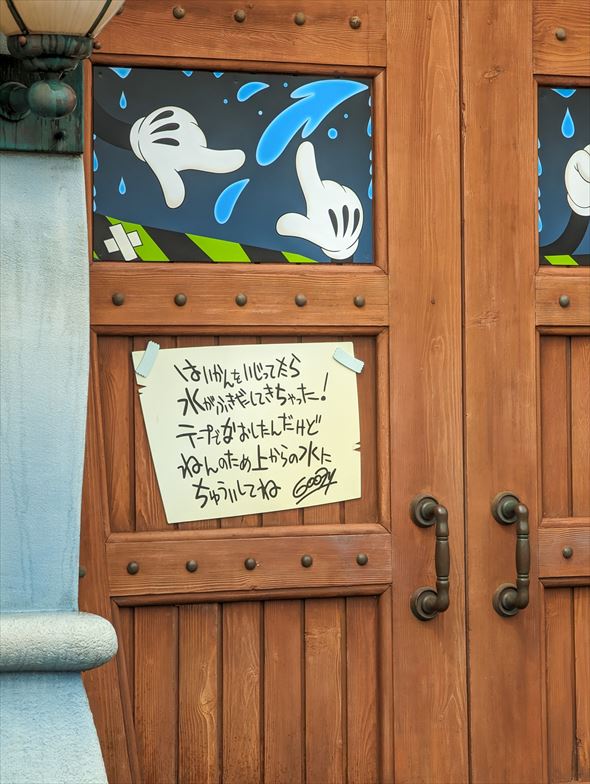 はいかんをいじってたら
水がふきだしてきちゃった!
テープでなおしたんだけど
ねんのため上からの水に
ちゅういしてね GOOFY